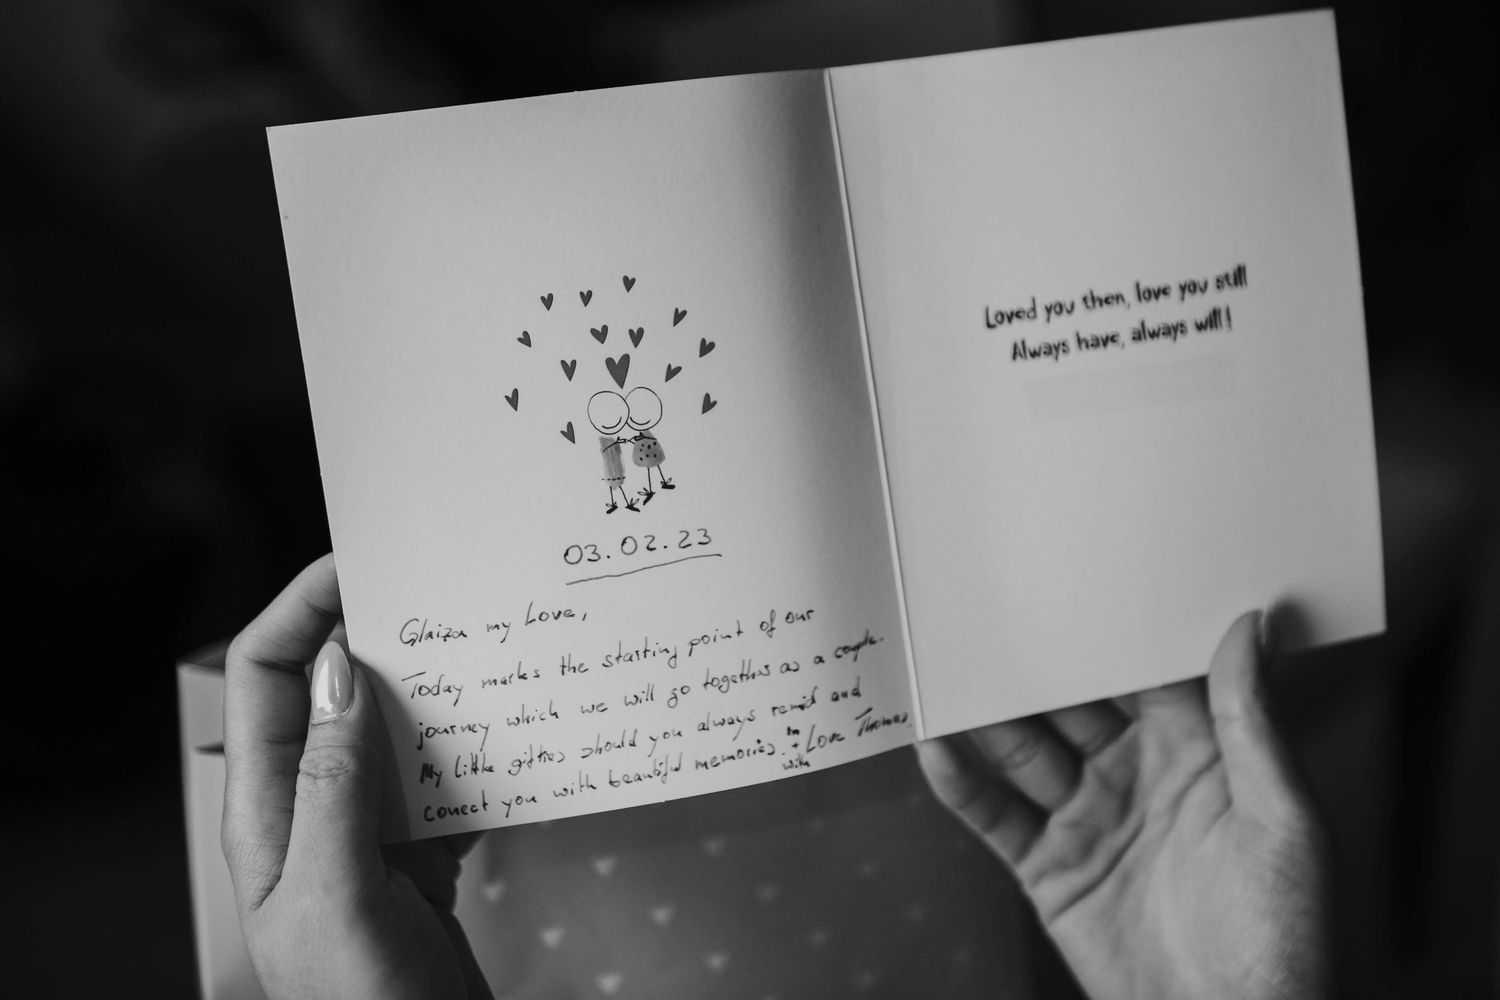 03.02.23
Glaiza my Love,
Today marks the starting point of our
journey which we will go together as a couple.
My little gifties should you always remid and
conect you with beautiful memories. In + with Love Thomas
Loved you then, love you still
Always have, always will!